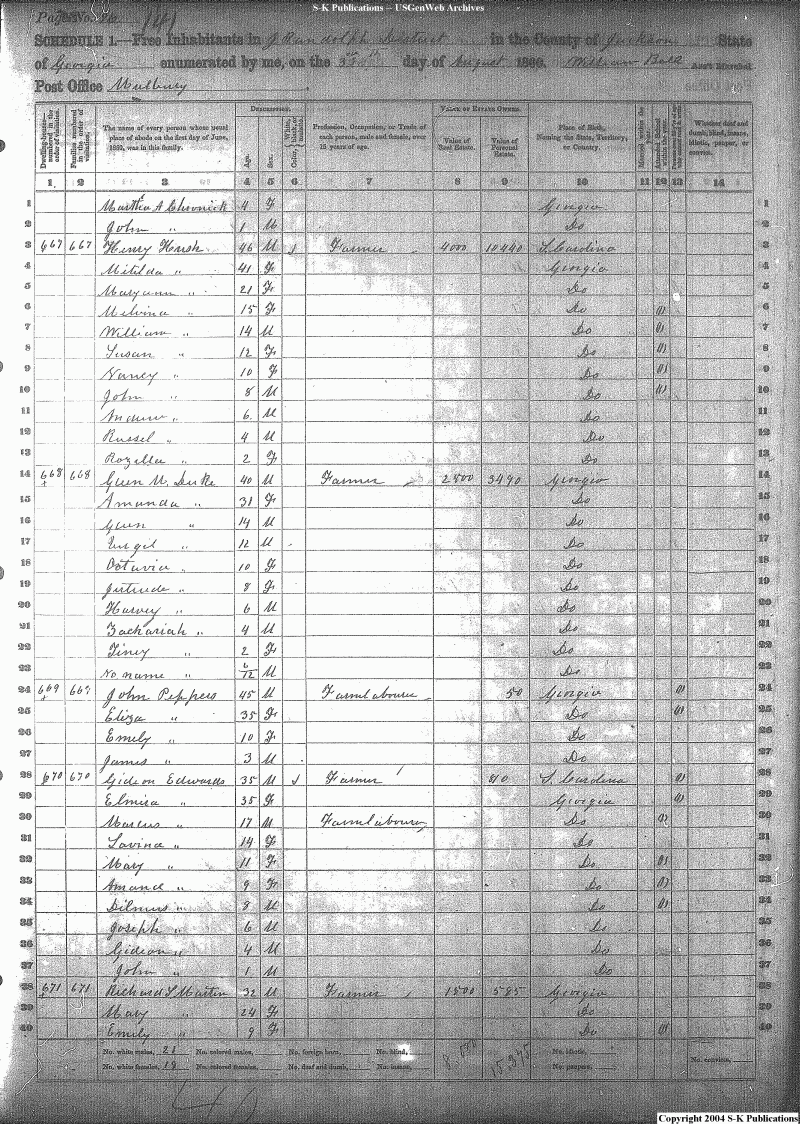 S-K Publications – USGenWeb Archives
Page No.
SCHEDULE 1.—Free Inhabitants in J Randolph District in the County of Jackson State
of Georgia enumerated by me, on the day of August 1860. William Bell Ass't Marshal
Post Office Mulbury
Dwelling-houses—numbered in the order of visitation.
Families numbered in the order of visitation.
The name of every person whose usual place of abode on the first day of June, 1860, was in this family.
DESCRIPTION.
Age.
Sex.
Color, White, black, or mulatto.
Profession, Occupation, or Trade of each person, male and female, over 15 years of age.
VALUE OF ESTATE OWNED.
Value of Real Estate.
Value of Personal Estate.
Place of Birth, Naming the State, Territory, or Country.
Married within the year.
Attended School within the year.
Whether deaf and dumb, blind, insane, idiotic, pauper, or convict.
1 2 3 4 5 6 7 8 9 10 11 12 13 14
1 Martha A Chronick 4 F Georgia 1
2 John " 1 M Do 2
3 667 667 Henry Hush 46 M Farmer 4000 10440 S. Carolina 3
4 Mitilda " 41 F Georgia 4
5 Maryann " 21 F Do 5
6 Melvina " 15 F Do 1 6
7 William " 14 M Do 1 7
8 Susan " 12 F Do 1 8
9 Nancy " 10 F Do 1 9
10 John " 8 M Do 1 10
11 Andrew " 6 M Do 11
12 Russel " 4 M Do 12
13 Rozilla " 2 F Do 13
14 668 668 Green M. Duke 40 M Farmer 2800 3490 Georgia 14
15 Amanda " 31 F Do 15
16 Green " 14 M Do 16
17 Virgil " 12 M Do 17
18 Octavia " 10 F Do 18
19 Gertrude " 8 F Do 19
20 Harvey " 6 M Do 20
21 Zachariah " 4 M Do 21
22 Tiney " 2 F Do 22
23 No name " 6/12 M Do 23
24 669 669 John Peppers 45 M Farmlabourer 50 Georgia 1 24
25 Eliza " 35 F Do 1 25
26 Emily " 10 F Do 26
27 James " 3 M Do 27
28 670 670 Gideon Edwards 35 M Farmer 40 S. Carolina 1 28
29 Elmira " 35 F Georgia 1 29
30 Marcus " 17 M Farmlabourer Do 1 30
31 Lavina " 14 F Do 31
32 Mary " 11 F Do 1 32
33 Amand " 9 F Do 1 33
34 Dilmus " 8 M Do 1 34
35 Joseph " 6 M Do 35
36 Gideon " 4 M Do 36
37 John " 1 M Do 37
38 671 671 Richard S Martin 32 M Farmer 1500 585 Georgia 38
39 Mary " 24 F Do 39
40 Emily " 9 F Do 1 40
No. white males, 21 No. colored males, No. foreign born, No. blind, No. idiotic, No. convicts,
No. white females, 19 No. colored females, No. deaf and dumb, No. insane, No. paupers,
Copyright 2004 S-K Publications